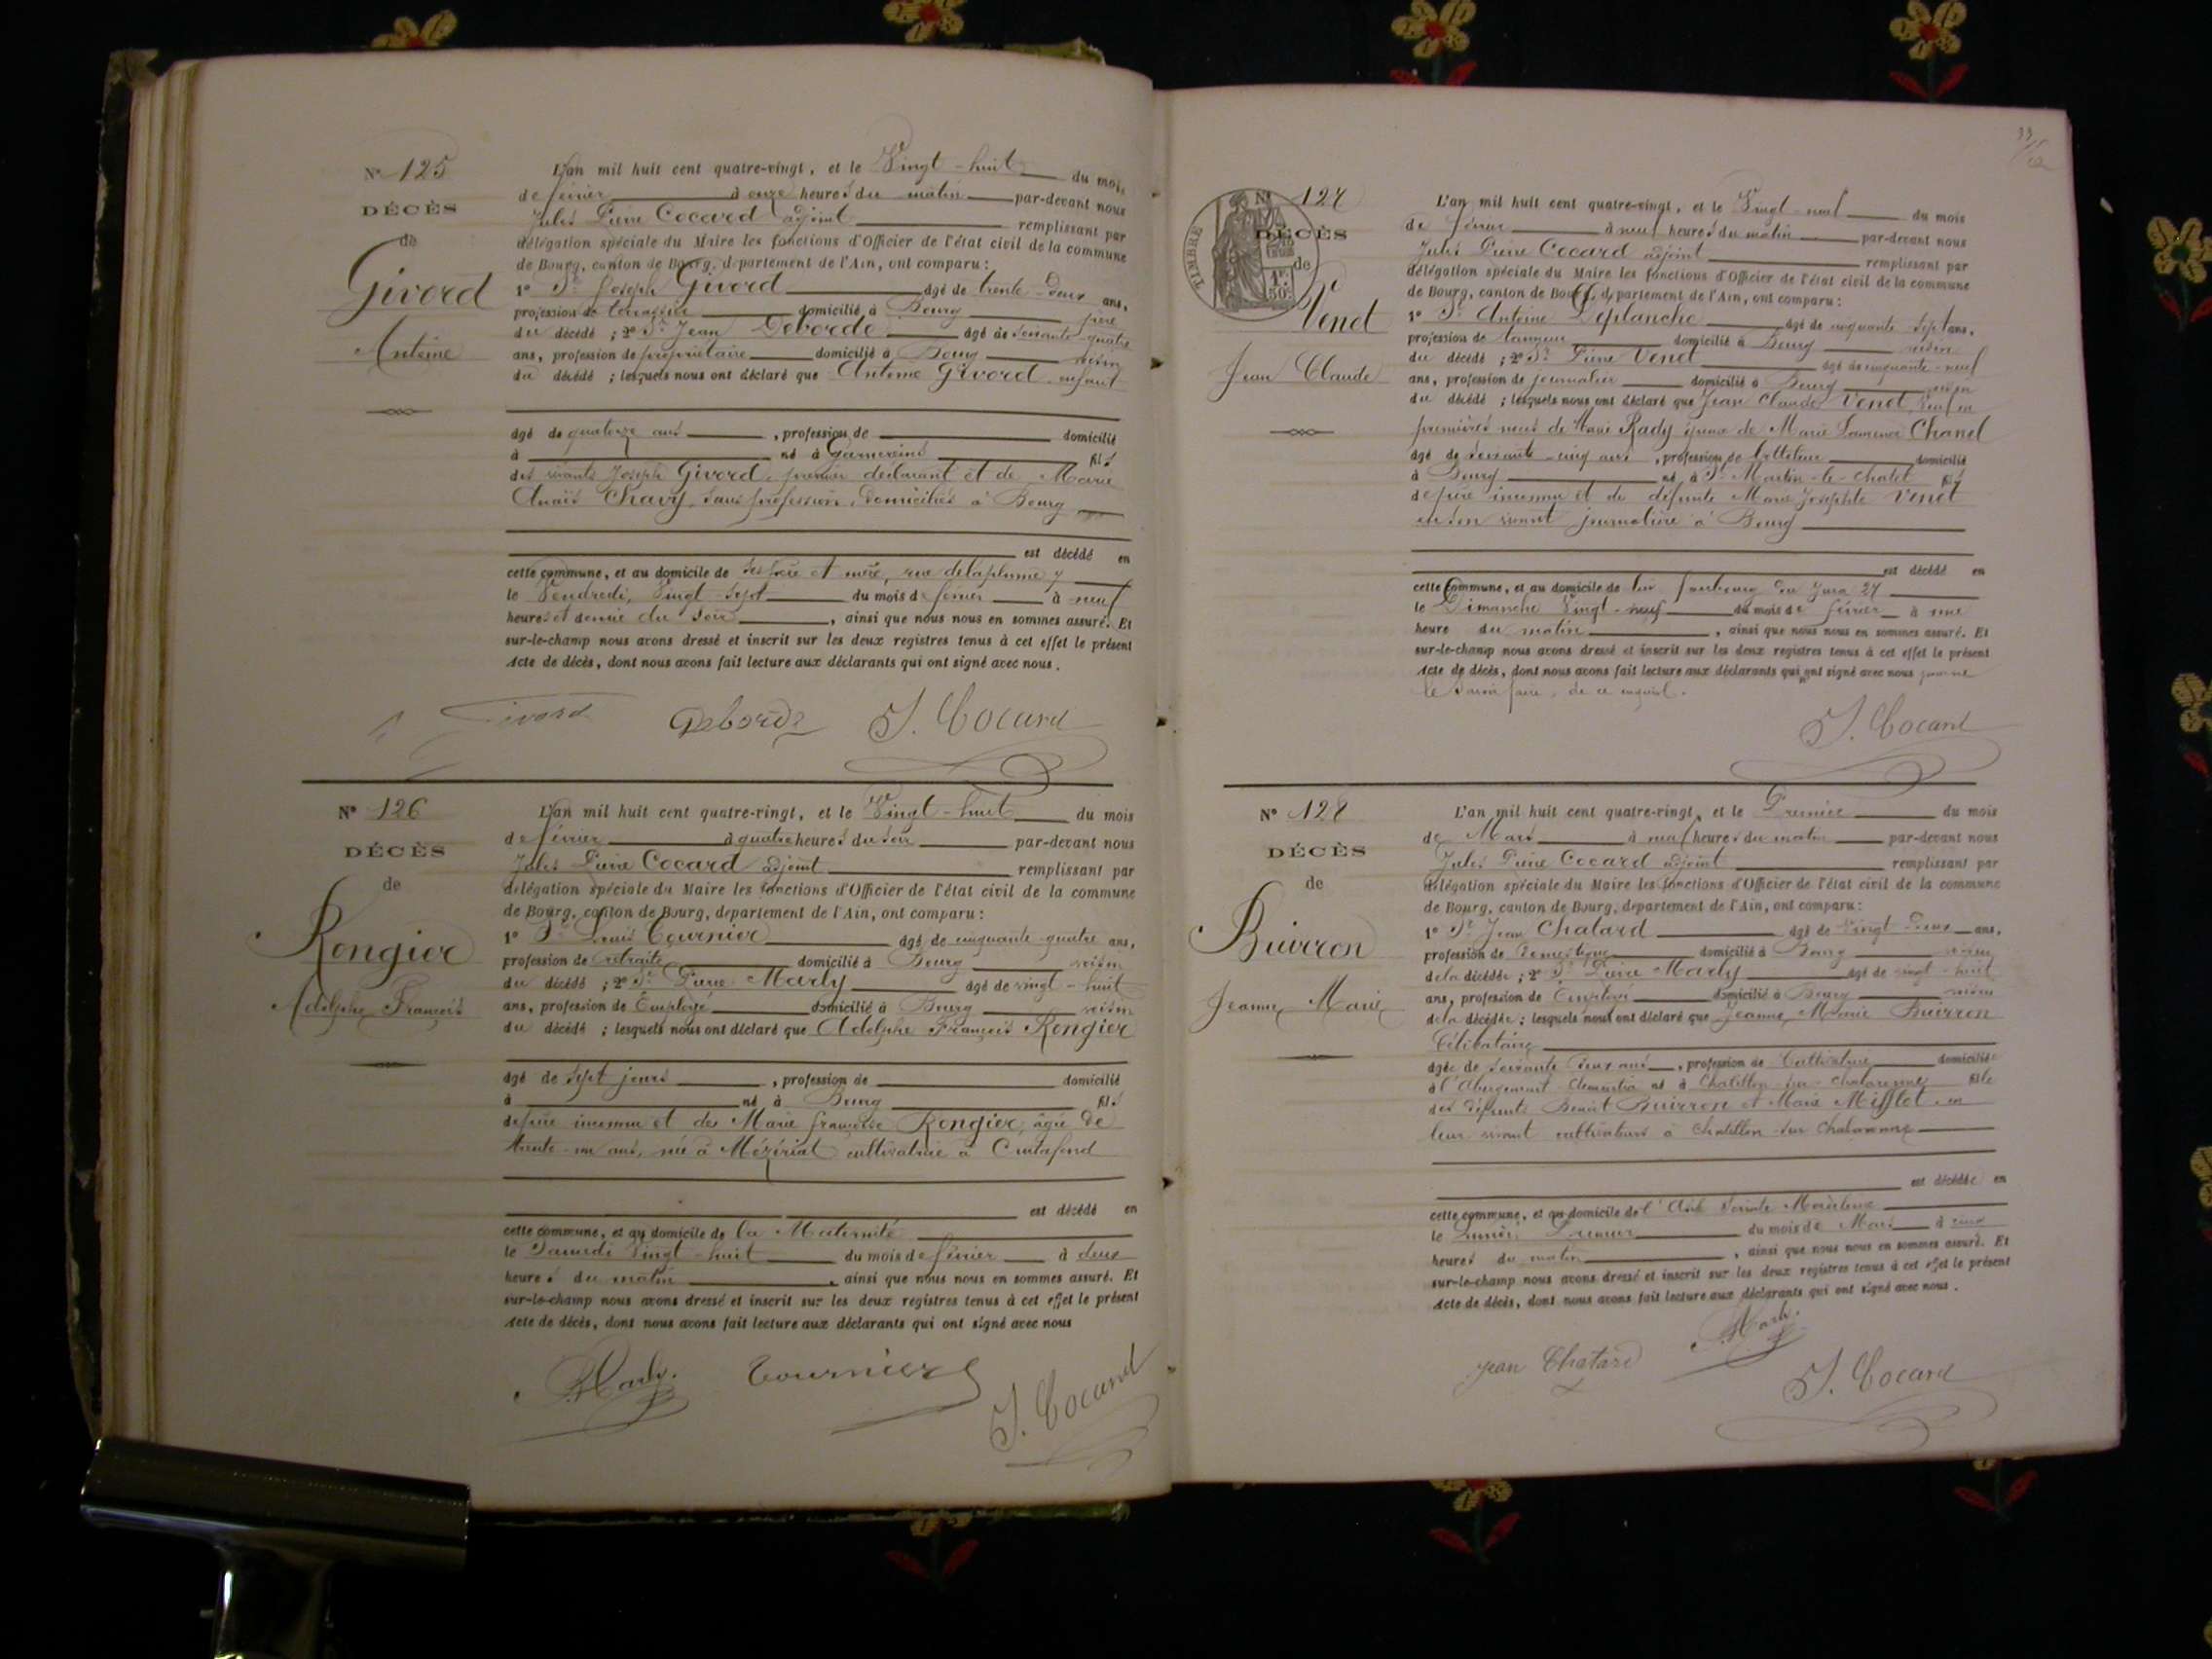 Nº 125
DÉCÈS
de
Givord
Antoine
L'an mil huit cent quatre-vingt, et le Vingt-huit du mois
de février à onze heures du matin par-devant nous
Jules Pierre Cocard adjoint remplissant par
délégation spéciale du Maire les fonctions d'Officier de l'état civil de la commune
de Bourg, canton de Bourg, département de l'Ain, ont comparu :
1º Sr Joseph Givord âgé de trente-deux ans,
profession de terrassier domicilié à Bourg père
du décédé ; 2º Sr Jean Deborde âgé de soixante-quatre
ans, profession de propriétaire domicilié à Bourg voisin
du décédé ; lesquels nous ont déclaré que Antoine Givord enfant
âgé de quatorze ans, profession de domicilié
à né à Garnerans fils
des vivants Joseph Givord, premier déclarant et de Marie
Anaïs Chavy, sans profession, domiciliés à Bourg
est décédé en
cette commune, et au domicile de ses père et mère, rue de la plume 7
le Vendredi, Vingt-sept du mois de février à neuf
heures et demie du soir, ainsi que nous nous en sommes assuré. Et
sur-le-champ nous avons dressé et inscrit sur les deux registres tenus à cet effet le présent
Acte de décès, dont nous avons fait lecture aux déclarants qui ont signé avec nous.
Givord Deborde J. Cocard
Nº 126
DÉCÈS
de
Rongier
Adolphe François
L'an mil huit cent quatre-vingt, et le Vingt-huit du mois
de février à quatre heures du soir par-devant nous
Jules Pierre Cocard adjoint remplissant par
délégation spéciale du Maire les fonctions d'Officier de l'état civil de la commune
de Bourg, canton de Bourg, département de l'Ain, ont comparu :
1º Sr Louis Tournier âgé de cinquante-quatre ans,
profession de retraité domicilié à Bourg voisin
du décédé ; 2º Sr Pierre Marly âgé de vingt-huit
ans, profession de Employé domicilié à Bourg voisin
du décédé ; lesquels nous ont déclaré que Adolphe François Rongier
âgé de sept jours, profession de domicilié
à né à Bourg fils
de père inconnu et de Marie françoise Rongier, âgée de
trente-un ans, née à Mézériat cultivatrice à Curtafond
est décédé en
cette commune, et au domicile de la Maternité
le Samedi Vingt-huit du mois de février à deux
heures du matin, ainsi que nous nous en sommes assuré. Et
sur-le-champ nous avons dressé et inscrit sur les deux registres tenus à cet effet le présent
Acte de décès, dont nous avons fait lecture aux déclarants qui ont signé avec nous
Marly Tournier J. Cocard
Nº 127
TIMBRE
1F.
50c.
DÉCÈS
de
Venet
Jean Claude
L'an mil huit cent quatre-vingt, et le Vingt-neuf du mois
de février à neuf heures du matin par-devant nous
Jules Pierre Cocard adjoint remplissant par
délégation spéciale du Maire les fonctions d'Officier de l'état civil de la commune
de Bourg, canton de Bourg, département de l'Ain, ont comparu :
1º Sr Antoine Leplanche âgé de cinquante-sept ans,
profession de tanneur domicilié à Bourg voisin
du décédé ; 2º Sr Pierre Venet âgé de cinquante-neuf
ans, profession de journalier domicilié à Bourg voisin
du décédé ; lesquels nous ont déclaré que Jean Claude Venet, veuf en
premières noces de Marie Rady époux de Marie Laurence Chanel
âgé de soixante-cinq ans, profession de domicilié
à Bourg né à St Martin-le-chatel fils
de père inconnu et de défunte Marie Josephte Venet
en son vivant journalière à Bourg
est décédé en
cette commune, et au domicile de lui faubourg du Jura 27
le Dimanche Vingt-neuf du mois de février à une
heure du matin, ainsi que nous nous en sommes assuré. Et
sur-le-champ nous avons dressé et inscrit sur les deux registres tenus à cet effet le présent
Acte de décès, dont nous avons fait lecture aux déclarants qui ont signé avec nous pour ne
le savoir faire, de ce enquis.
J. Cocard
Nº 128
DÉCÈS
de
Buirron
Jeanne Marie
L'an mil huit cent quatre-vingt, et le Premier du mois
de Mars à neuf heures du matin par-devant nous
Jules Pierre Cocard adjoint remplissant par
délégation spéciale du Maire les fonctions d'Officier de l'état civil de la commune
de Bourg, canton de Bourg, département de l'Ain, ont comparu :
1º Sr Jean Chatard âgé de vingt-deux ans,
profession de domestique domicilié à Bourg voisin
de la décédée ; 2º Sr Pierre Marly âgé de vingt-huit
ans, profession de Employé domicilié à Bourg voisin
de la décédée ; lesquels nous ont déclaré que Jeanne Marie Buirron
Célibataire
âgée de soixante deux ans, profession de Cultivatrice domiciliée
à l'Abergement-clémentia né à Chatillon-sur-chalaronne fille
des défunts Benoit Buirron et Marie Mifflet en
leur vivant cultivateurs à Chatillon-sur-Chalaronne
est décédée en
cette commune, et au domicile de l'Asile Sainte Madeleine
le Lundi Premier du mois de Mars à
heures du matin, ainsi que nous nous en sommes assuré. Et
sur-le-champ nous avons dressé et inscrit sur les deux registres tenus à cet effet le présent
Acte de décès, dont nous avons fait lecture aux déclarants qui ont signé avec nous.
Jean Chatard Marly J. Cocard